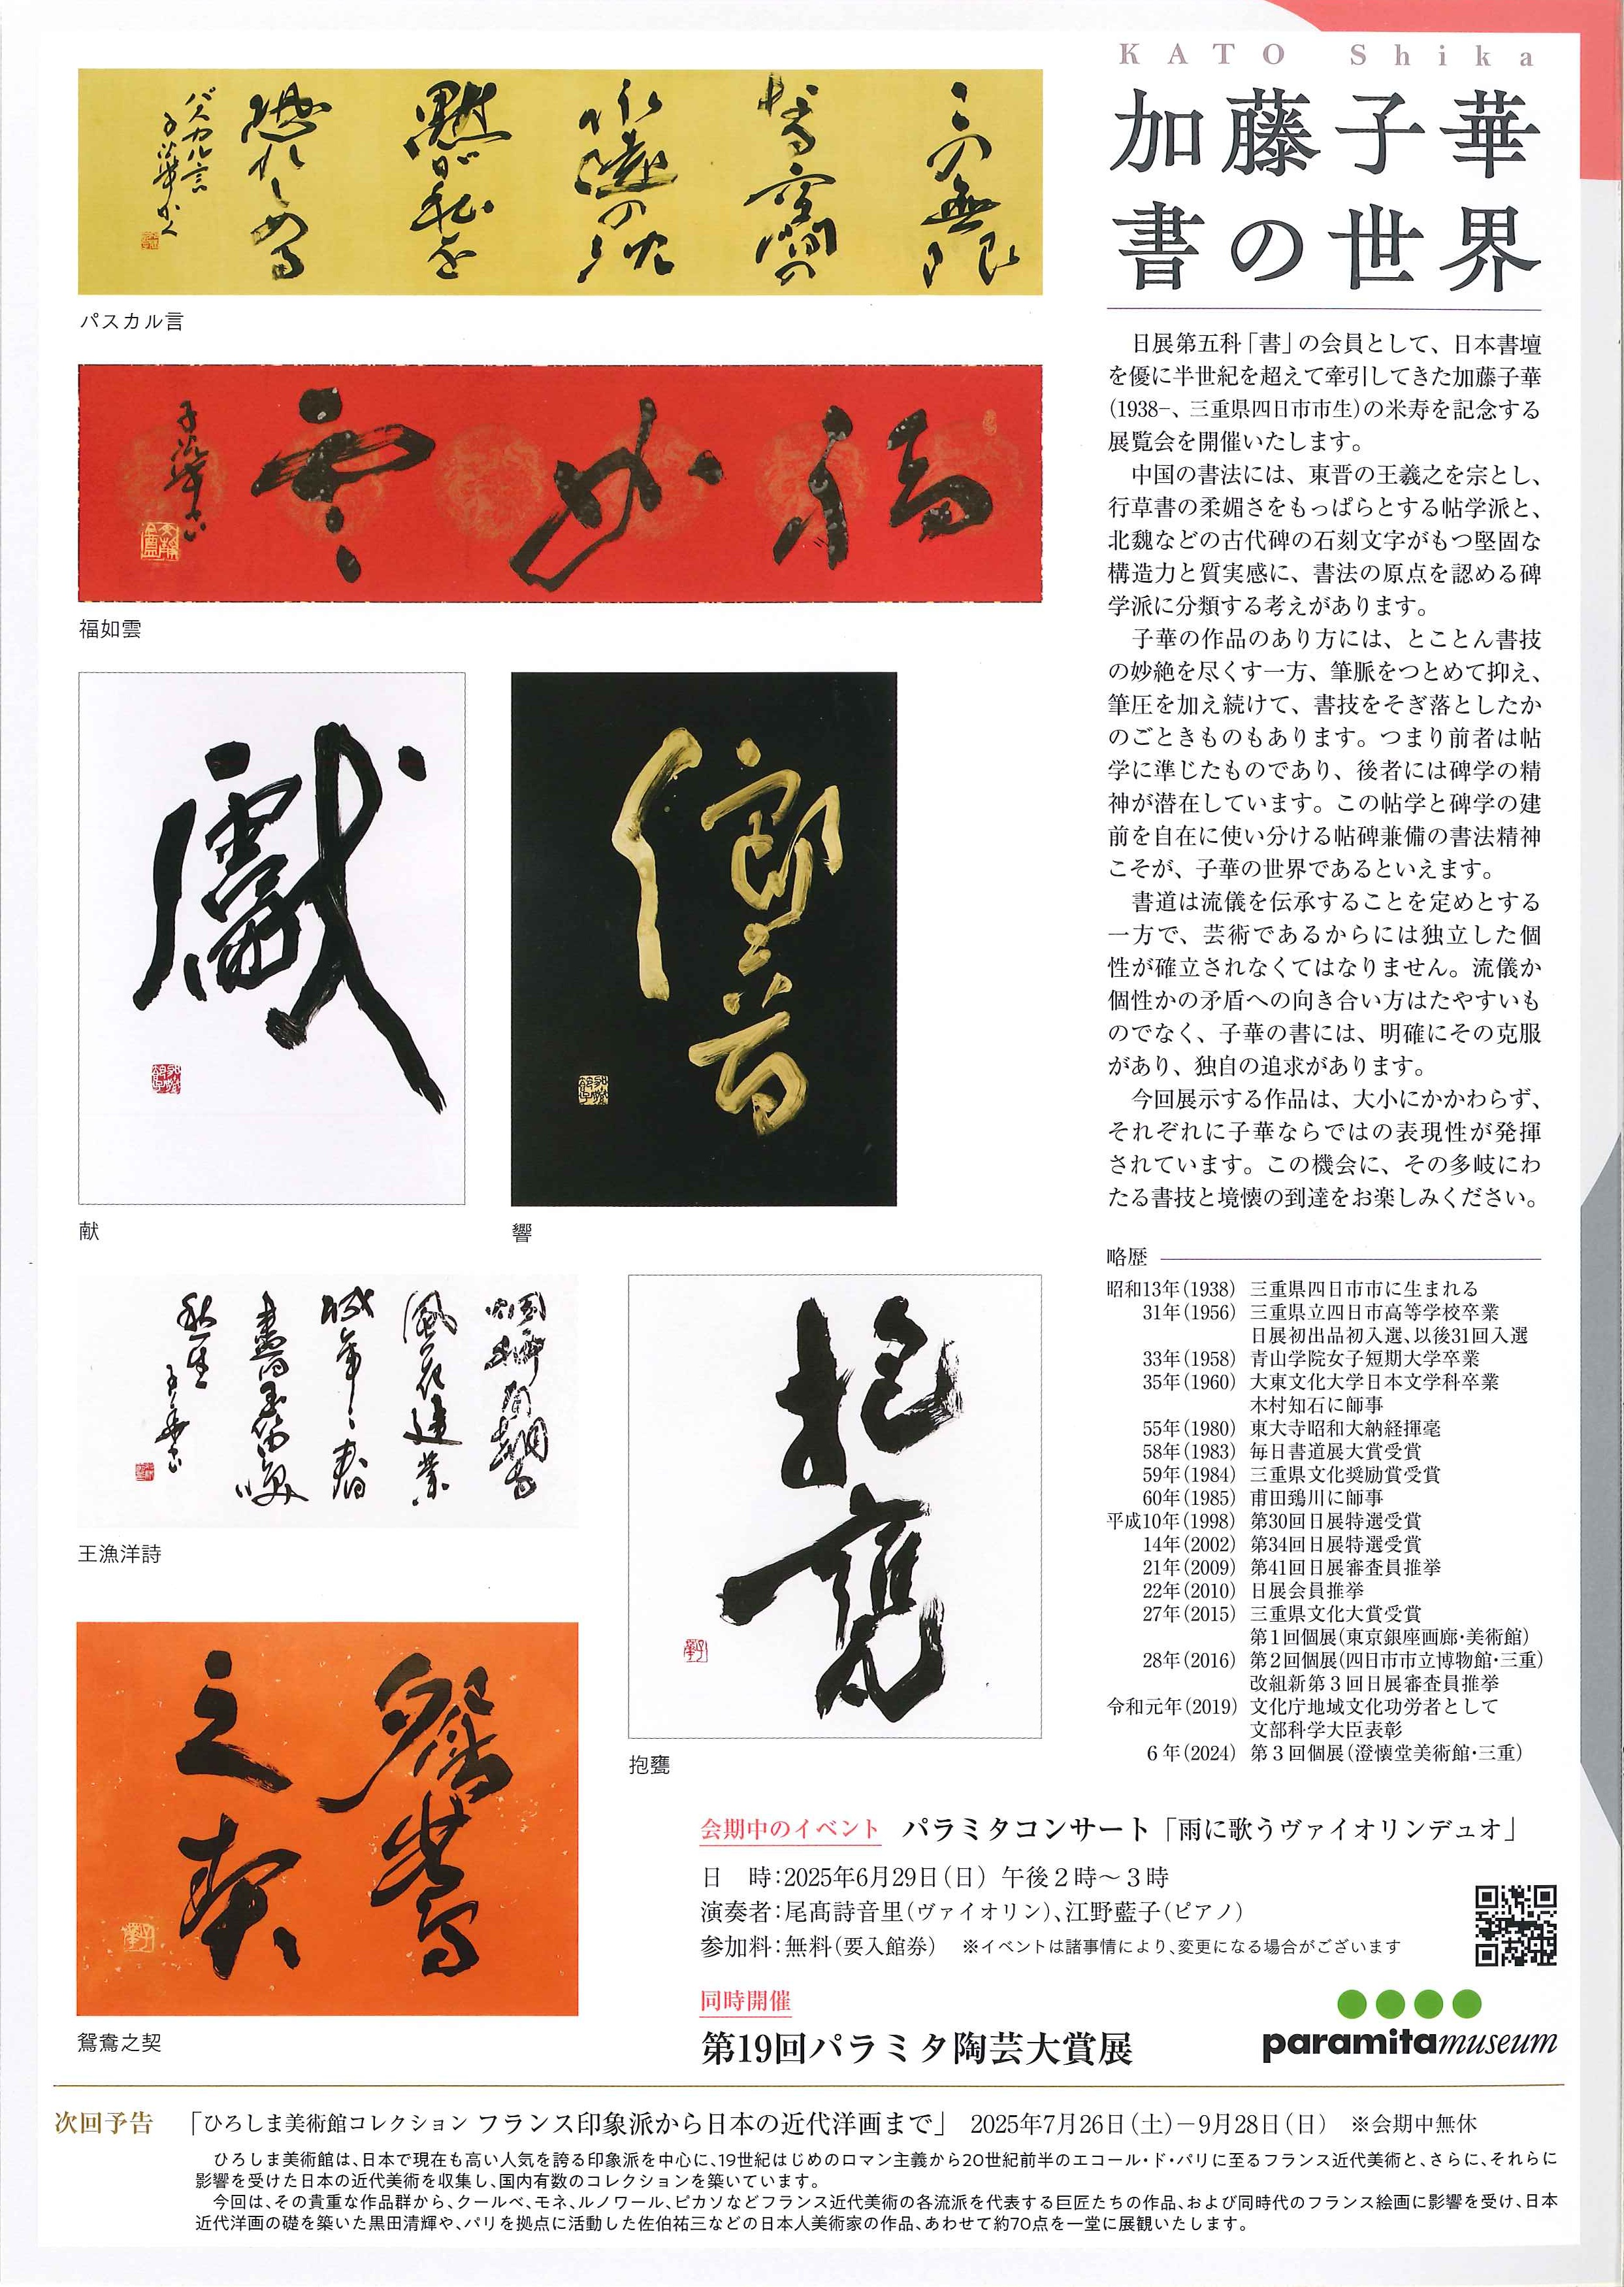 KATO Shika
加藤子華
書の世界
日展第五科「書」の会員として、日本書壇
を優に半世紀を超えて牽引してきた加藤子華
(1938−、三重県四日市市生)の米寿を記念する
展覧会を開催いたします。
中国の書法には、東晋の王羲之を宗とし、
行草書の柔媚さをもっぱらとする帖学派と、
北魏などの古代碑の石刻文字がもつ堅固な
構造力と質実感に、書法の原点を認める碑
学派に分類する考えがあります。
子華の作品のあり方には、とことん書技
の妙絶を尽くす一方、筆脈をつとめて抑え、
筆圧を加え続けて、書技をそぎ落としたか
のごときものもあります。つまり前者は帖
学に準じたものであり、後者には碑学の精
神が潜在しています。この帖学と碑学の建
前を自在に使い分ける帖碑兼備の書法精神
こそが、子華の世界であるといえます。
書道は流儀を伝承することを定めとする
一方で、芸術であるからには独立した個
性が確立されなくてはなりません。流儀か
個性かの矛盾への向き合い方はたやすいも
のでなく、子華の書には、明確にその克服
があり、独自の追求があります。
今回展示する作品は、大小にかかわらず、
それぞれに子華ならではの表現性が発揮
されています。この機会に、その多岐にわ
たる書技と境懐の到達をお楽しみください。
略歴
昭和13年(1938) 三重県四日市市に生まれる
31年(1956) 三重県立四日市高等学校卒業
日展初出品初入選、以後31回入選
33年(1958) 青山学院女子短期大学卒業
35年(1960) 大東文化大学日本文学科卒業
木村知石に師事
55年(1980) 東大寺昭和大納経揮毫
58年(1983) 毎日書道展大賞受賞
59年(1984) 三重県文化奨励賞受賞
60年(1985) 甫田鵄川に師事
平成10年(1998) 第30回日展特選受賞
14年(2002) 第34回日展特選受賞
21年(2009) 第41回日展審査員推挙
22年(2010) 日展会員推挙
27年(2015) 三重県文化大賞受賞
第1回個展(東京銀座画廊・美術館)
28年(2016) 第2回個展(四日市市立博物館・三重)
改組新第3回日展審査員推挙
令和元年(2019) 文化庁地域文化功労者として
文部科学大臣表彰
6年(2024) 第3回個展(澄懐堂美術館・三重)
この無限
なる空間の
永遠の沈
黙が私を
恐れしめる
パスカル言
パスカル言
福如雲
福如雲
献
響
王漁洋詩
抱甕
抱甕
鴛鴦
之契
鴛鴦之契
会期中のイベント パラミタコンサート「雨に歌うヴァイオリンデュオ」
日 時:2025年6月29日(日) 午後2時〜3時
演奏者:尾髙詩音里(ヴァイオリン)、江野藍子(ピアノ)
参加料:無料(要入館券) ※イベントは諸事情により、変更になる場合がございます
同時開催
第19回パラミタ陶芸大賞展
paramitamuseum
次回予告 「ひろしま美術館コレクション フランス印象派から日本の近代洋画まで」 2025年7月26日(土)−9月28日(日) ※会期中無休
ひろしま美術館は、日本で現在も高い人気を誇る印象派を中心に、19世紀はじめのロマン主義から20世紀前半のエコール・ド・パリに至るフランス近代美術と、さらに、それらに
影響を受けた日本の近代美術を収集し、国内有数のコレクションを築いています。
今回は、その貴重な作品群から、クールベ、モネ、ルノワール、ピカソなどフランス近代美術の各流派を代表する巨匠たちの作品、および同時代のフランス絵画に影響を受け、日本
近代洋画の礎を築いた黒田清輝や、パリを拠点に活動した佐伯祐三などの日本人美術家の作品、あわせて約70点を一堂に展観いたします。